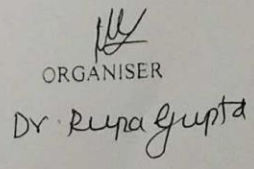 ORGANISER
Dr. Rupa Gupta